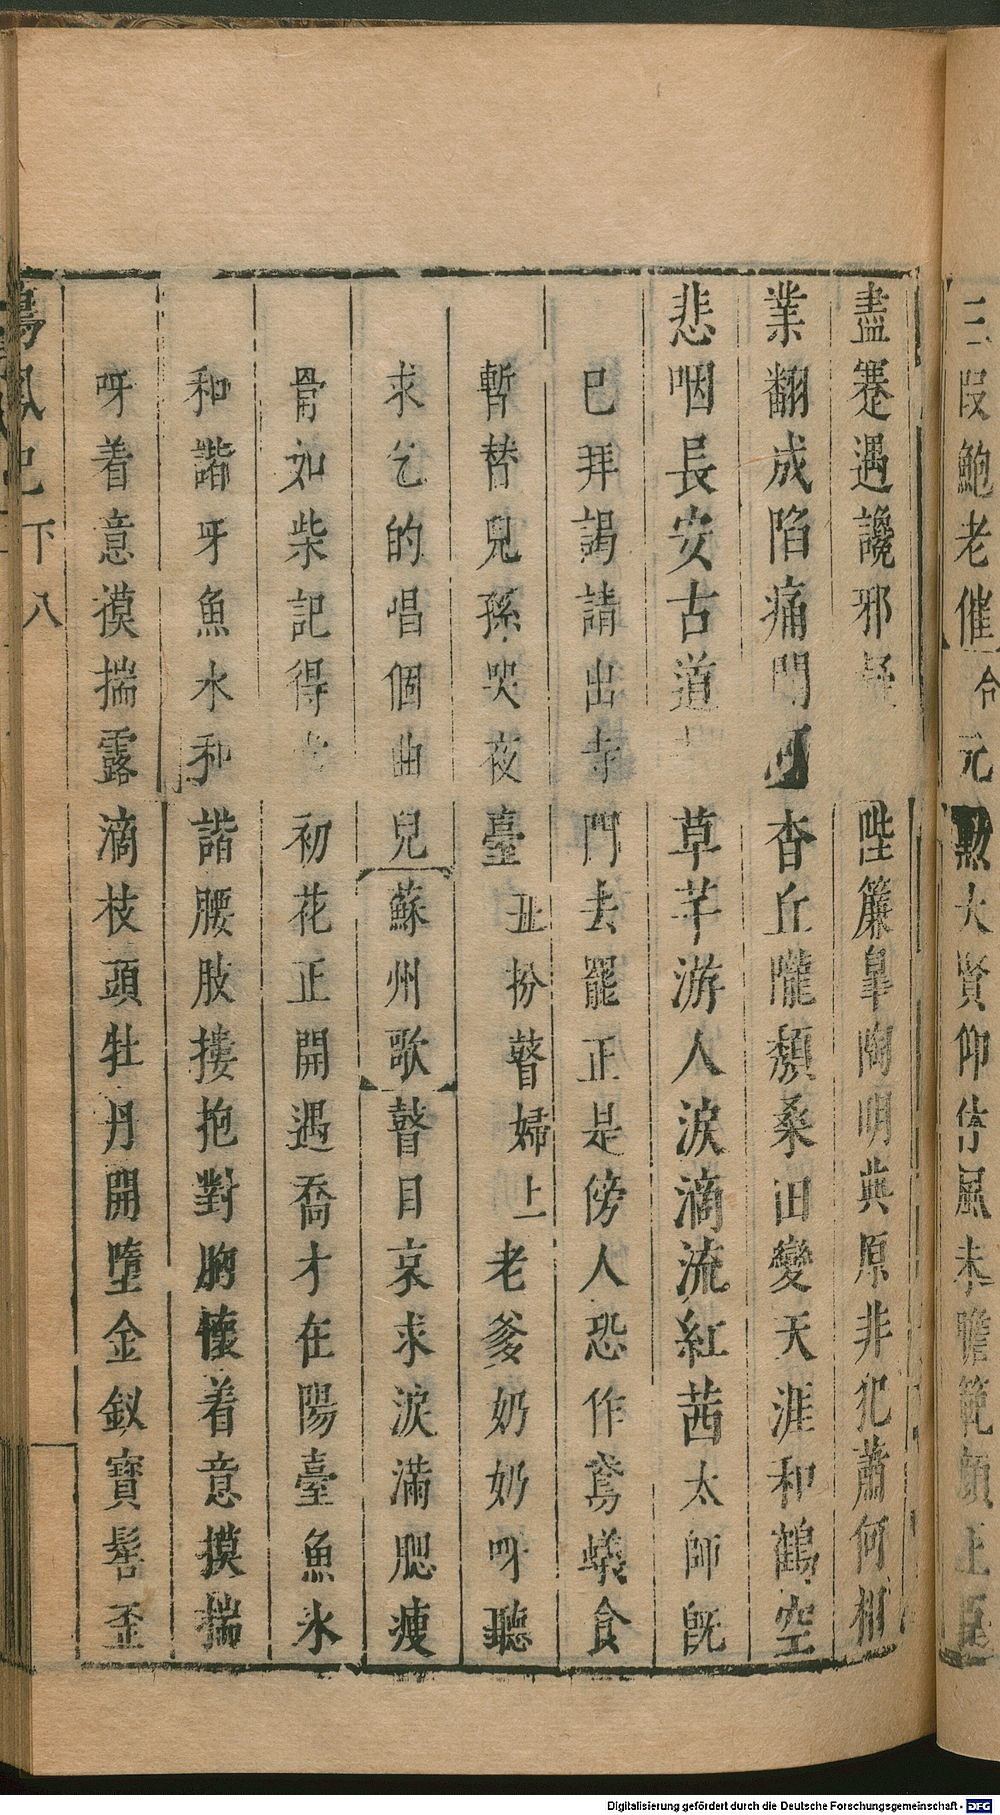 三叚鮑老催合元勲大賢仰其風未瞻範顔上
盡蹇遇讒邪陛簾皐陶明典原非犯蕭何相
業翻成陷痛門杳丘隴頽桑田變天涯和鶴空
悲咽長安古道草芊游人淚滴流紅茜太師既
已拜謁請出寺門去罷正是傍人恐作鳶蟻食
暫替兒孫哭夜臺丑扮瞽婦上老爹奶奶呀聽
求乞的唱個曲兒蘇州歌瞽目哀求淚滿腮瘦
骨如柴記得初花正開遇喬才在陽臺魚水
和諧呀魚水和諧腰肢摟抱對胸懷着意摸揣
呀着意摸揣露滴枝頭牡丹開墮金釵寶髻歪
鳳
下
八
Digitalisierung gefördert durch die Deutsche Forschungsgemeinschaft - DFG